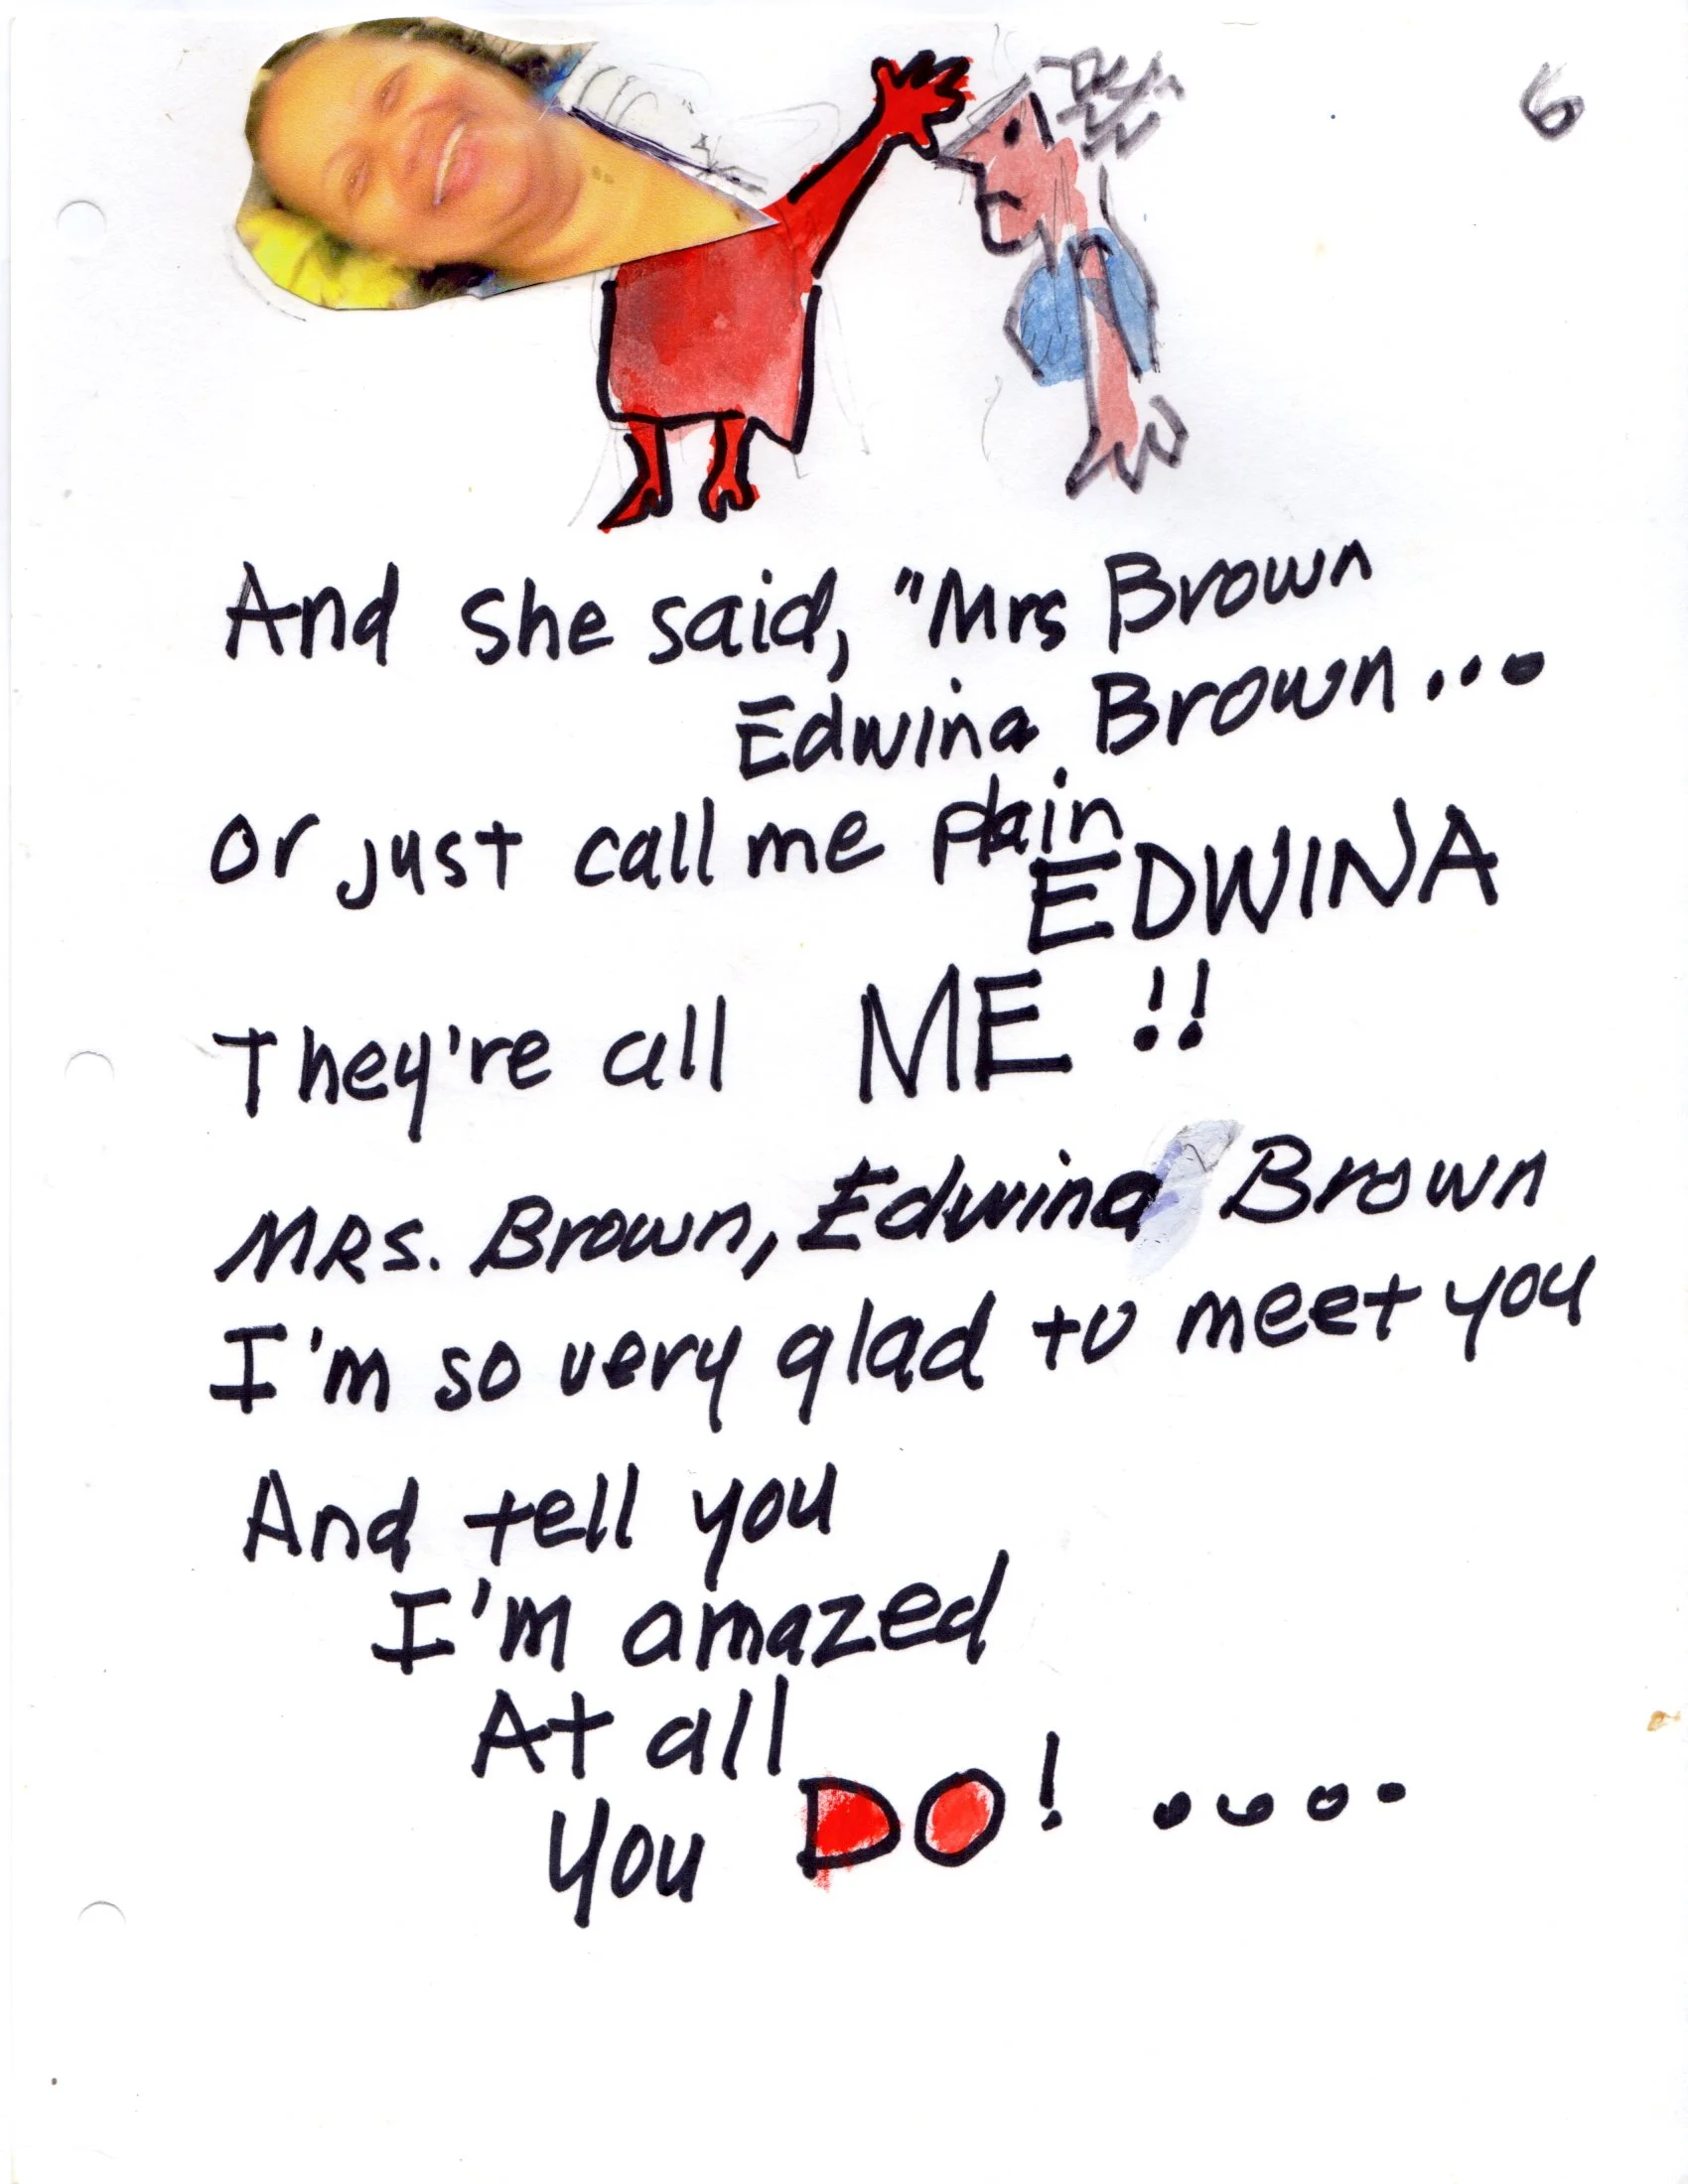 6
And she said, "Mrs Brown
Edwina Brown...
or just call me plain
EDWINA
They're all ME!!
MRs. Brown, Edwina Brown
I'm so very glad to meet you
And tell you
I'm amazed
At all
You DO! ....